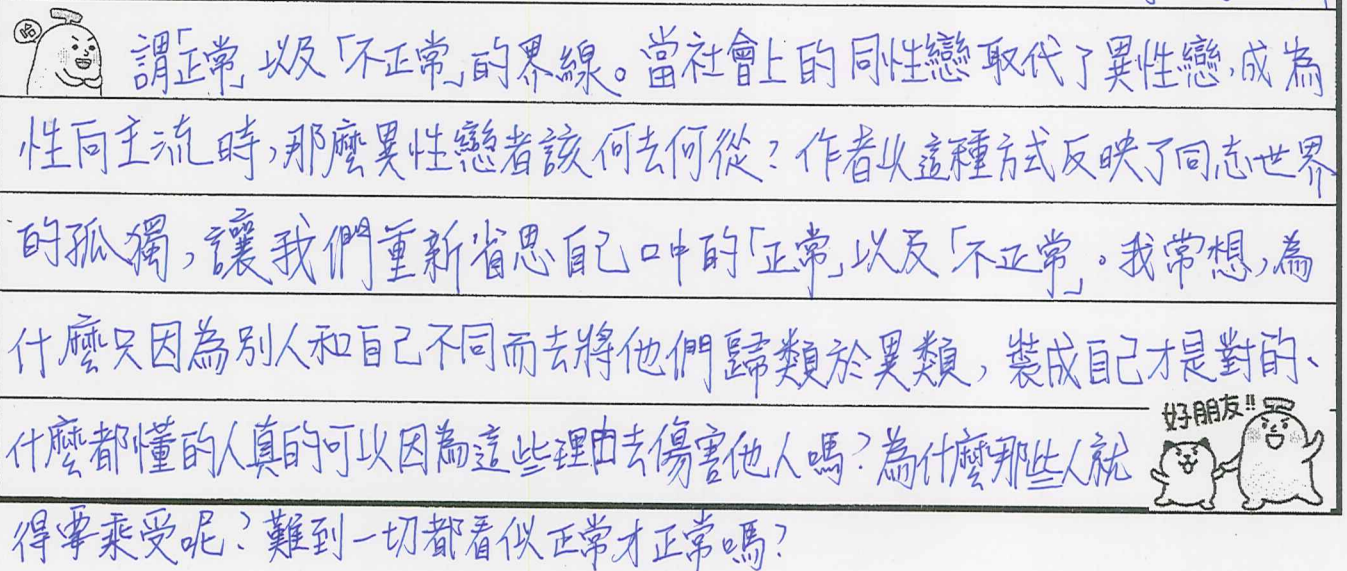 哈
謂「正常」以及「不正常」的界線。當社會上的同性戀取代了異性戀,成為
性向主流時,那麼異性戀者該何去何從?作者以這種方式反映了同志世界
的孤獨,讓我們重新省思自己口中的「正常」以及「不正常」。我常想,為
什麼只因為別人和自己不同而去將他們歸類於異類,裝成自己才是對的、
好朋友!!
什麼都懂的人真的可以因為這些理由去傷害他人嗎?為什麼那些人就
得要乘受呢?難到一切都看似正常才正常嗎?